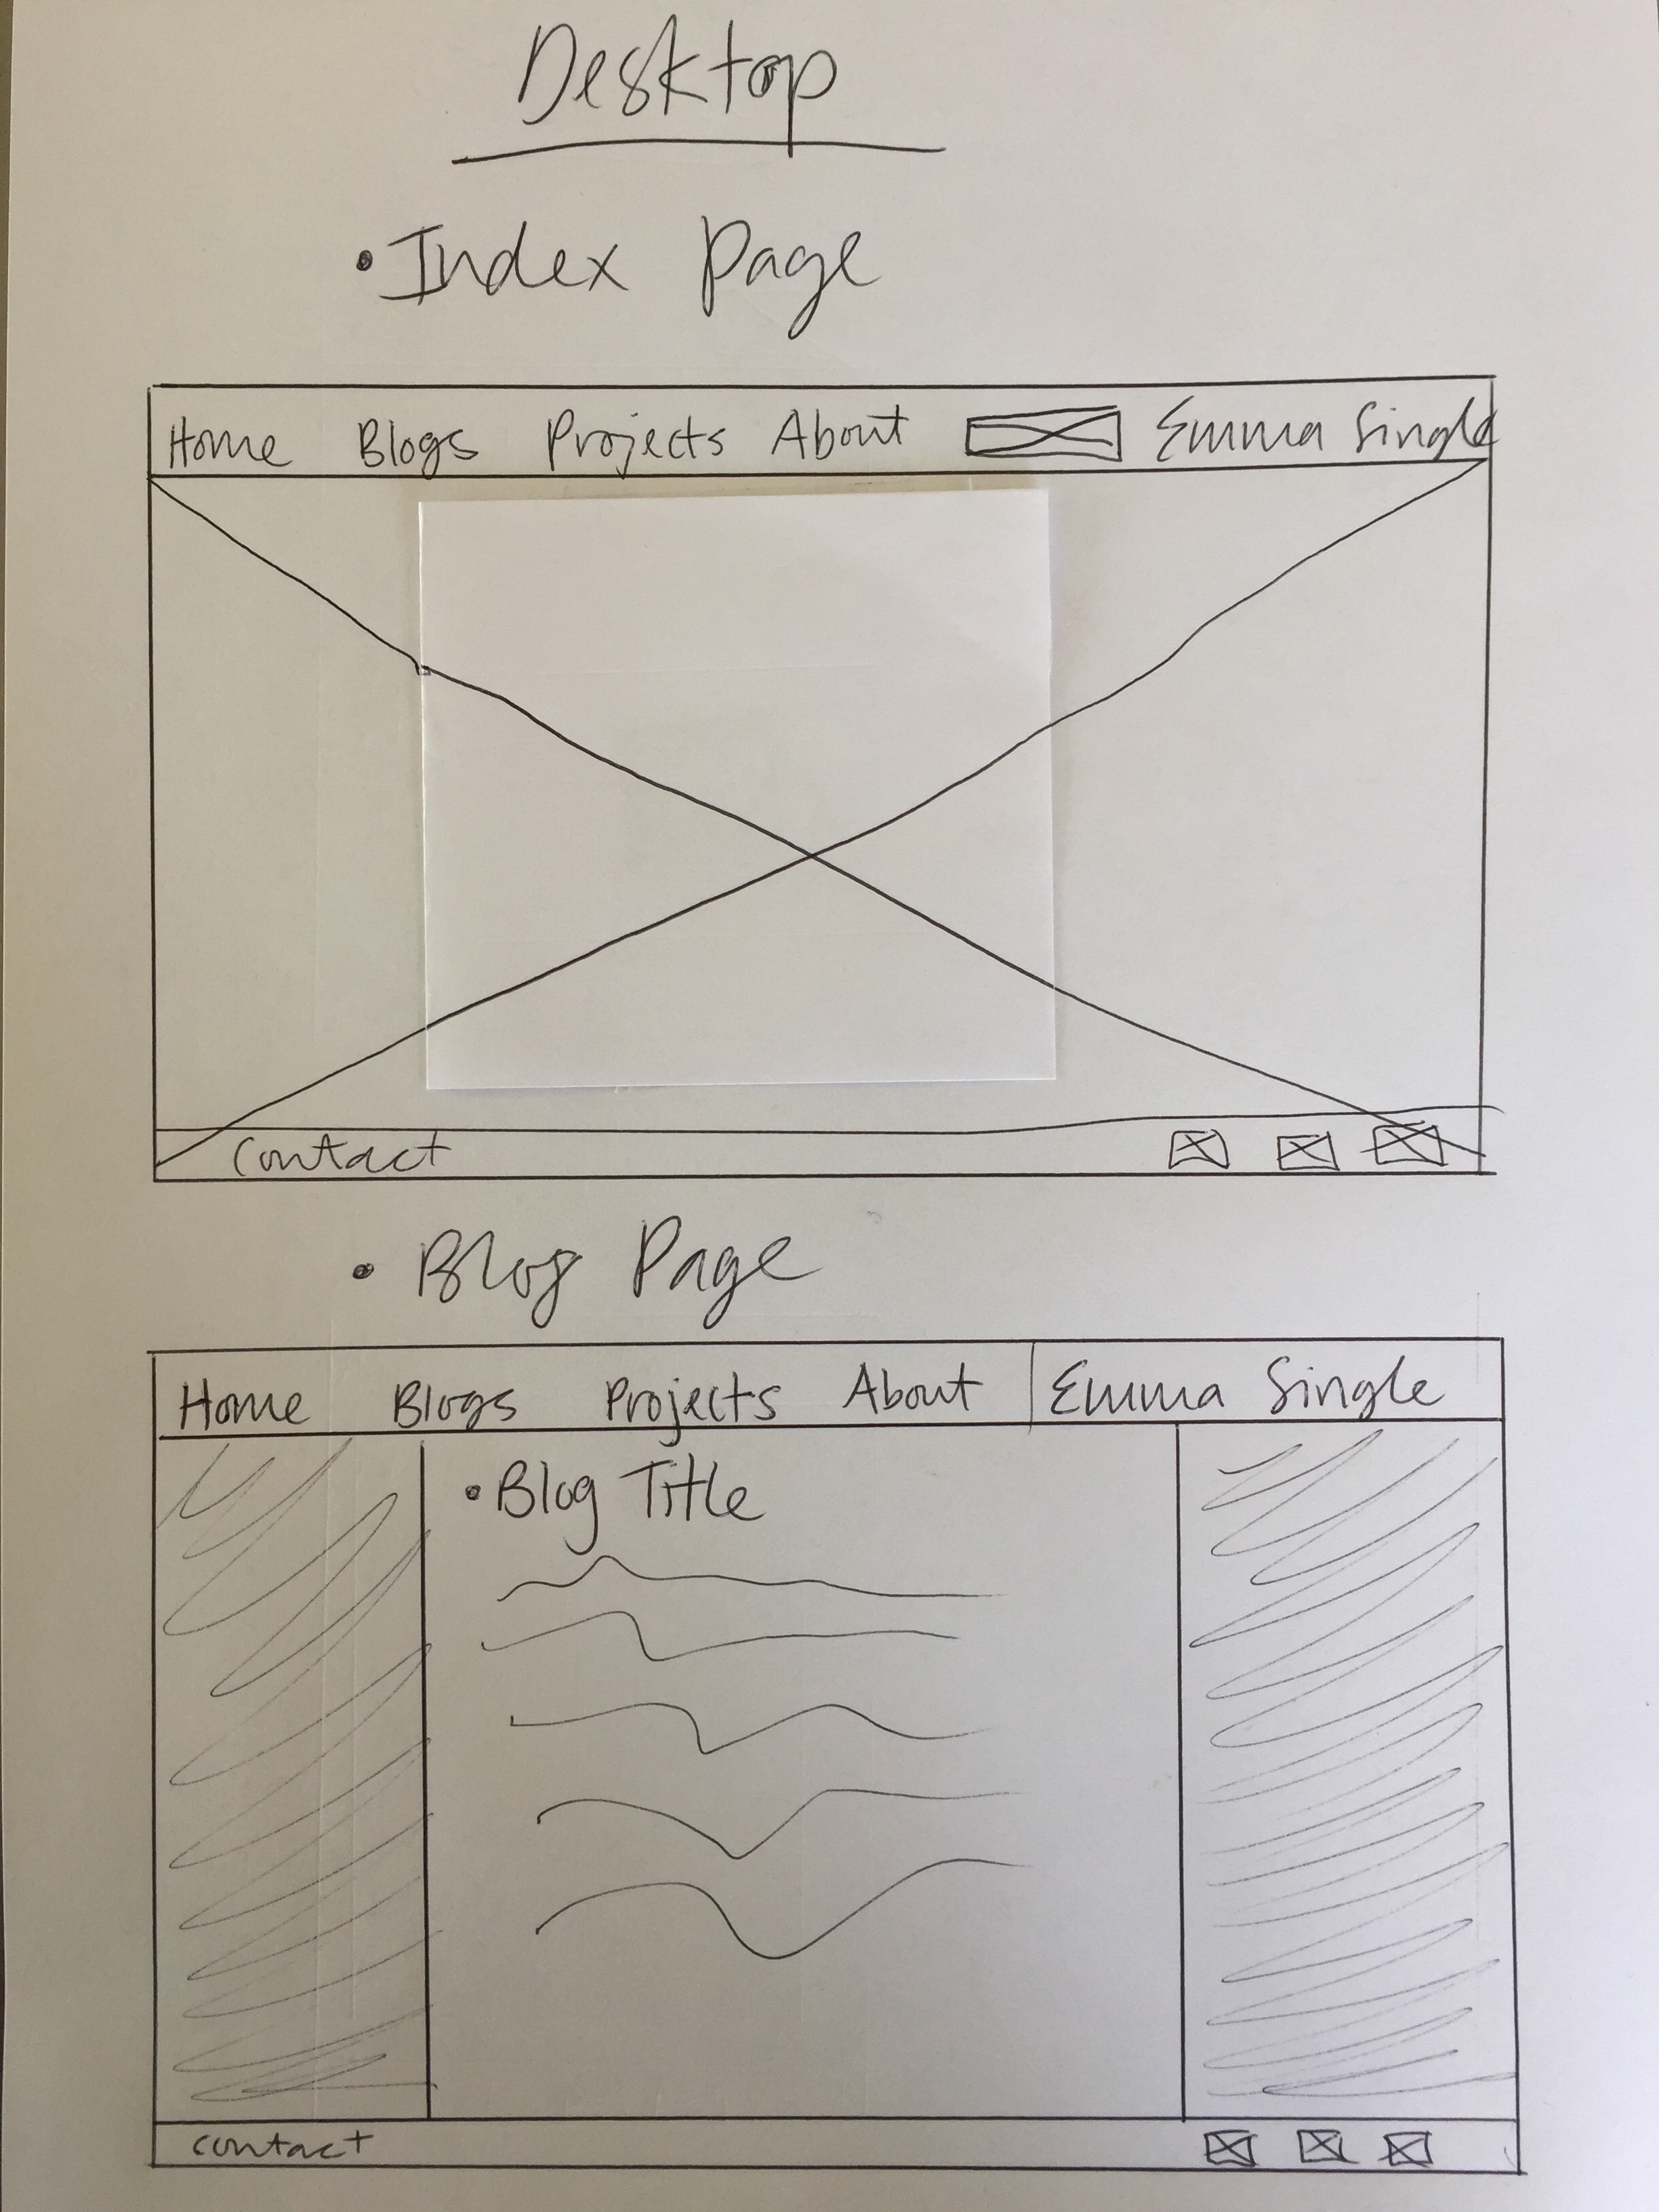 Desktop
• Index Page
Home Blogs Projects About Emma Single
Contact
• Blog Page
Home Blogs Projects About Emma Single
• Blog Title
contact